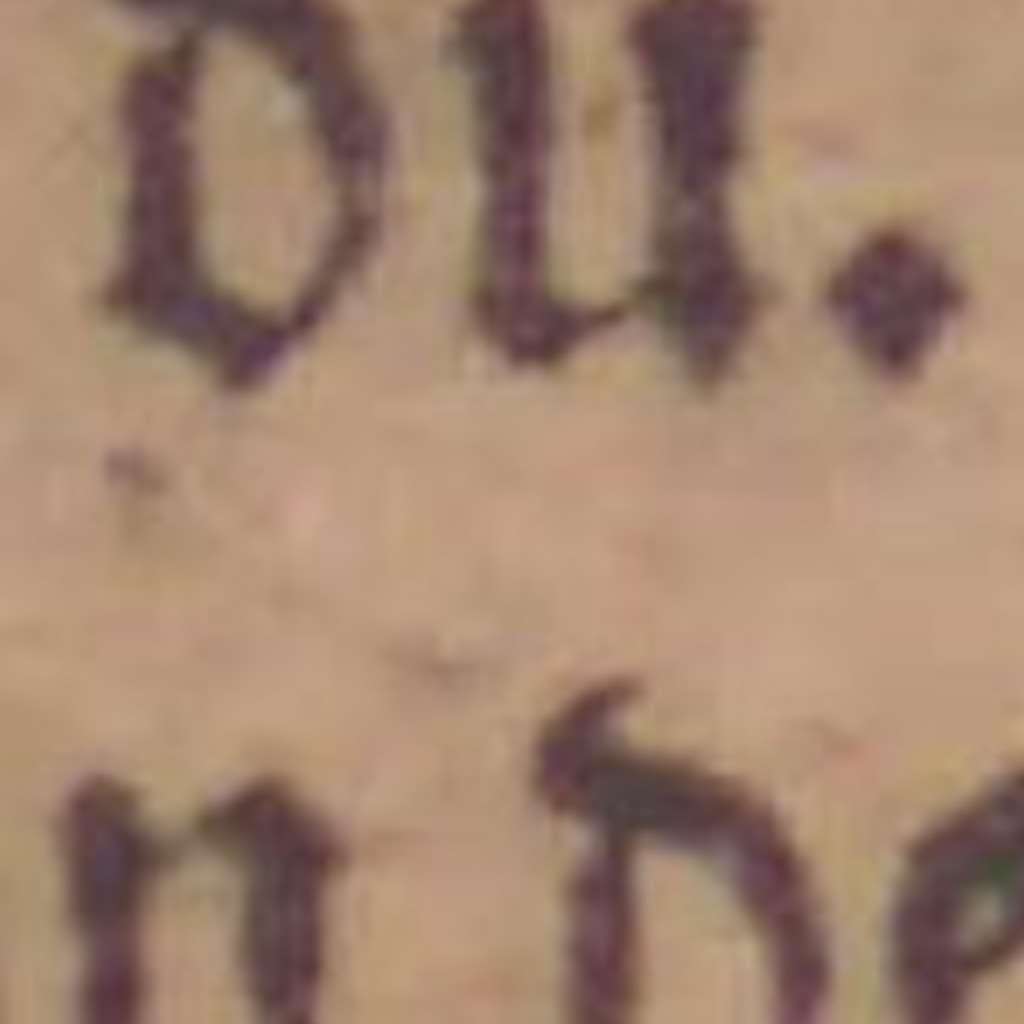 du.
n de